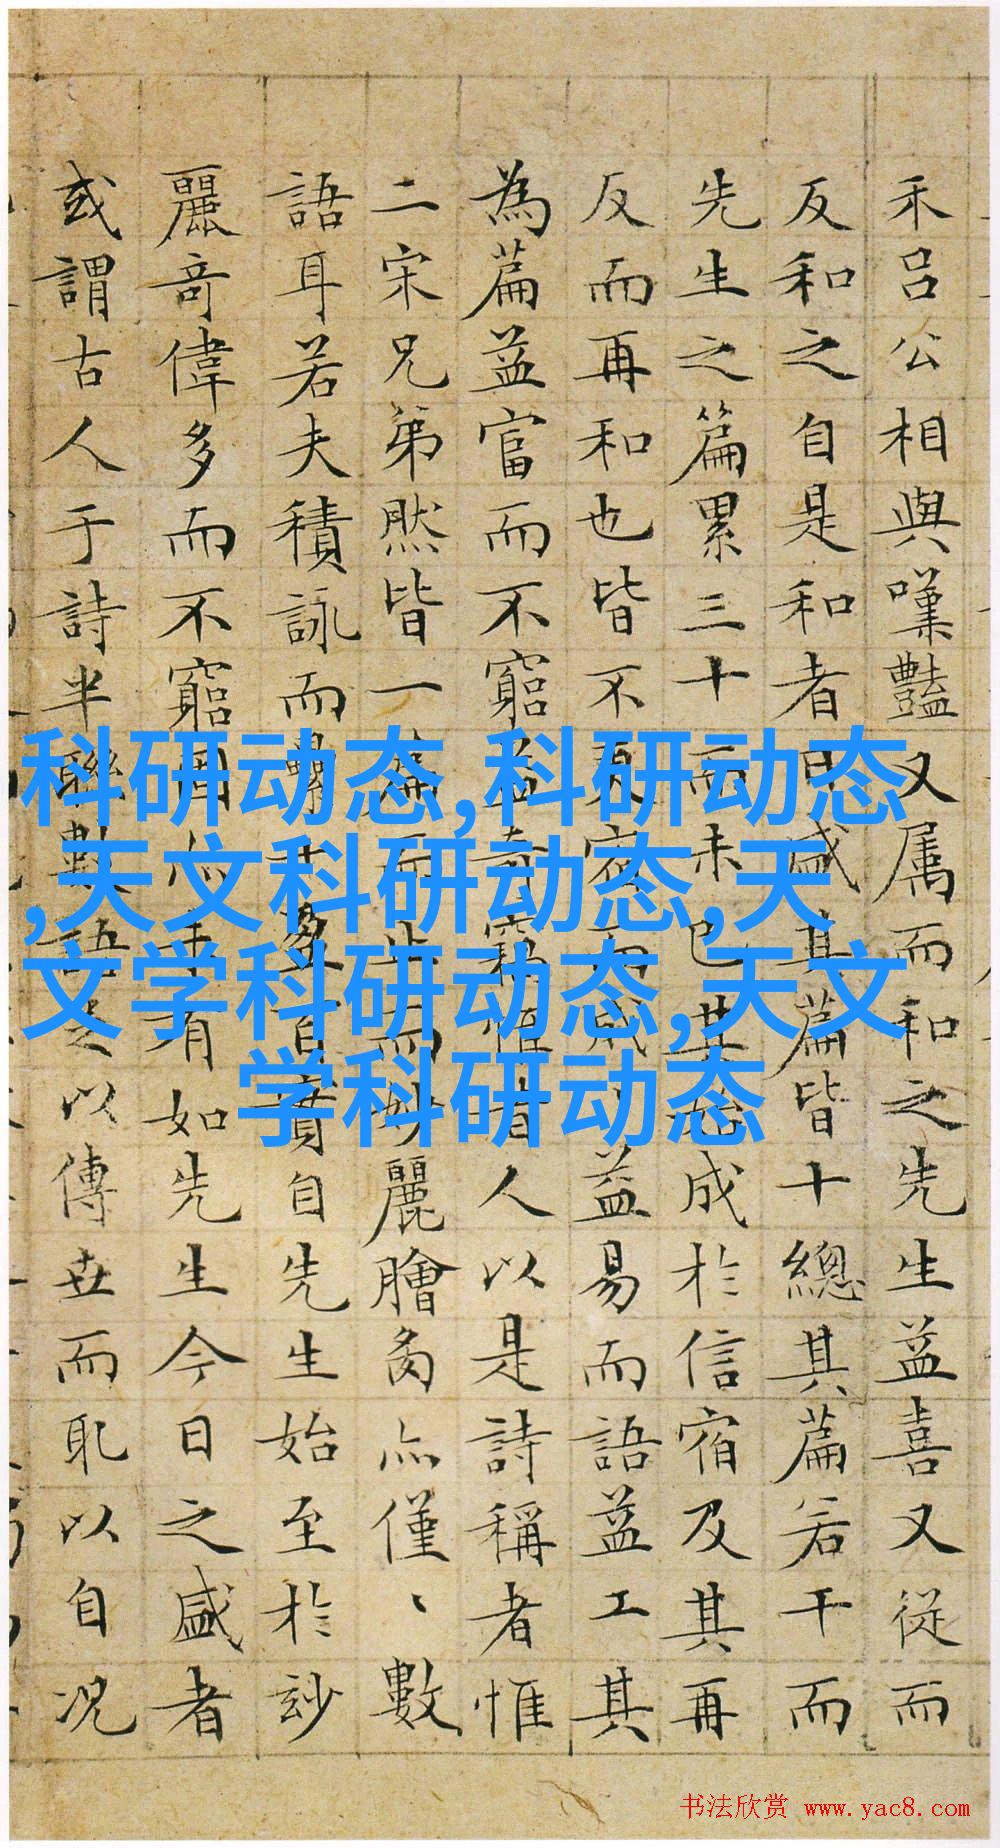 禾吕公相與嘆豔又属而和之先生益喜又從而
反和之自是和者日盛其篇皆十總其篇若干而
先生之篇累三十而未已其始成於信宿及其再
反而再和也皆不更宿而成益易而語益工其
為篇益富而不窮益奇窮惟昔人以是詩稱者惟
二宋兄弟然皆一篇而止而妙麗膾炙亦僅、數
語耳若夫積詠而自先生始至於玅
麗奇偉多而不窮固亦未有如先生今日之盛者
或謂古人于詩半聯數語足以傳世而耻以自况
科研动态,科研动态
,天文科研动态,天
文学科研动态,天文
学科研动态
书法欣赏 www.yac8.com